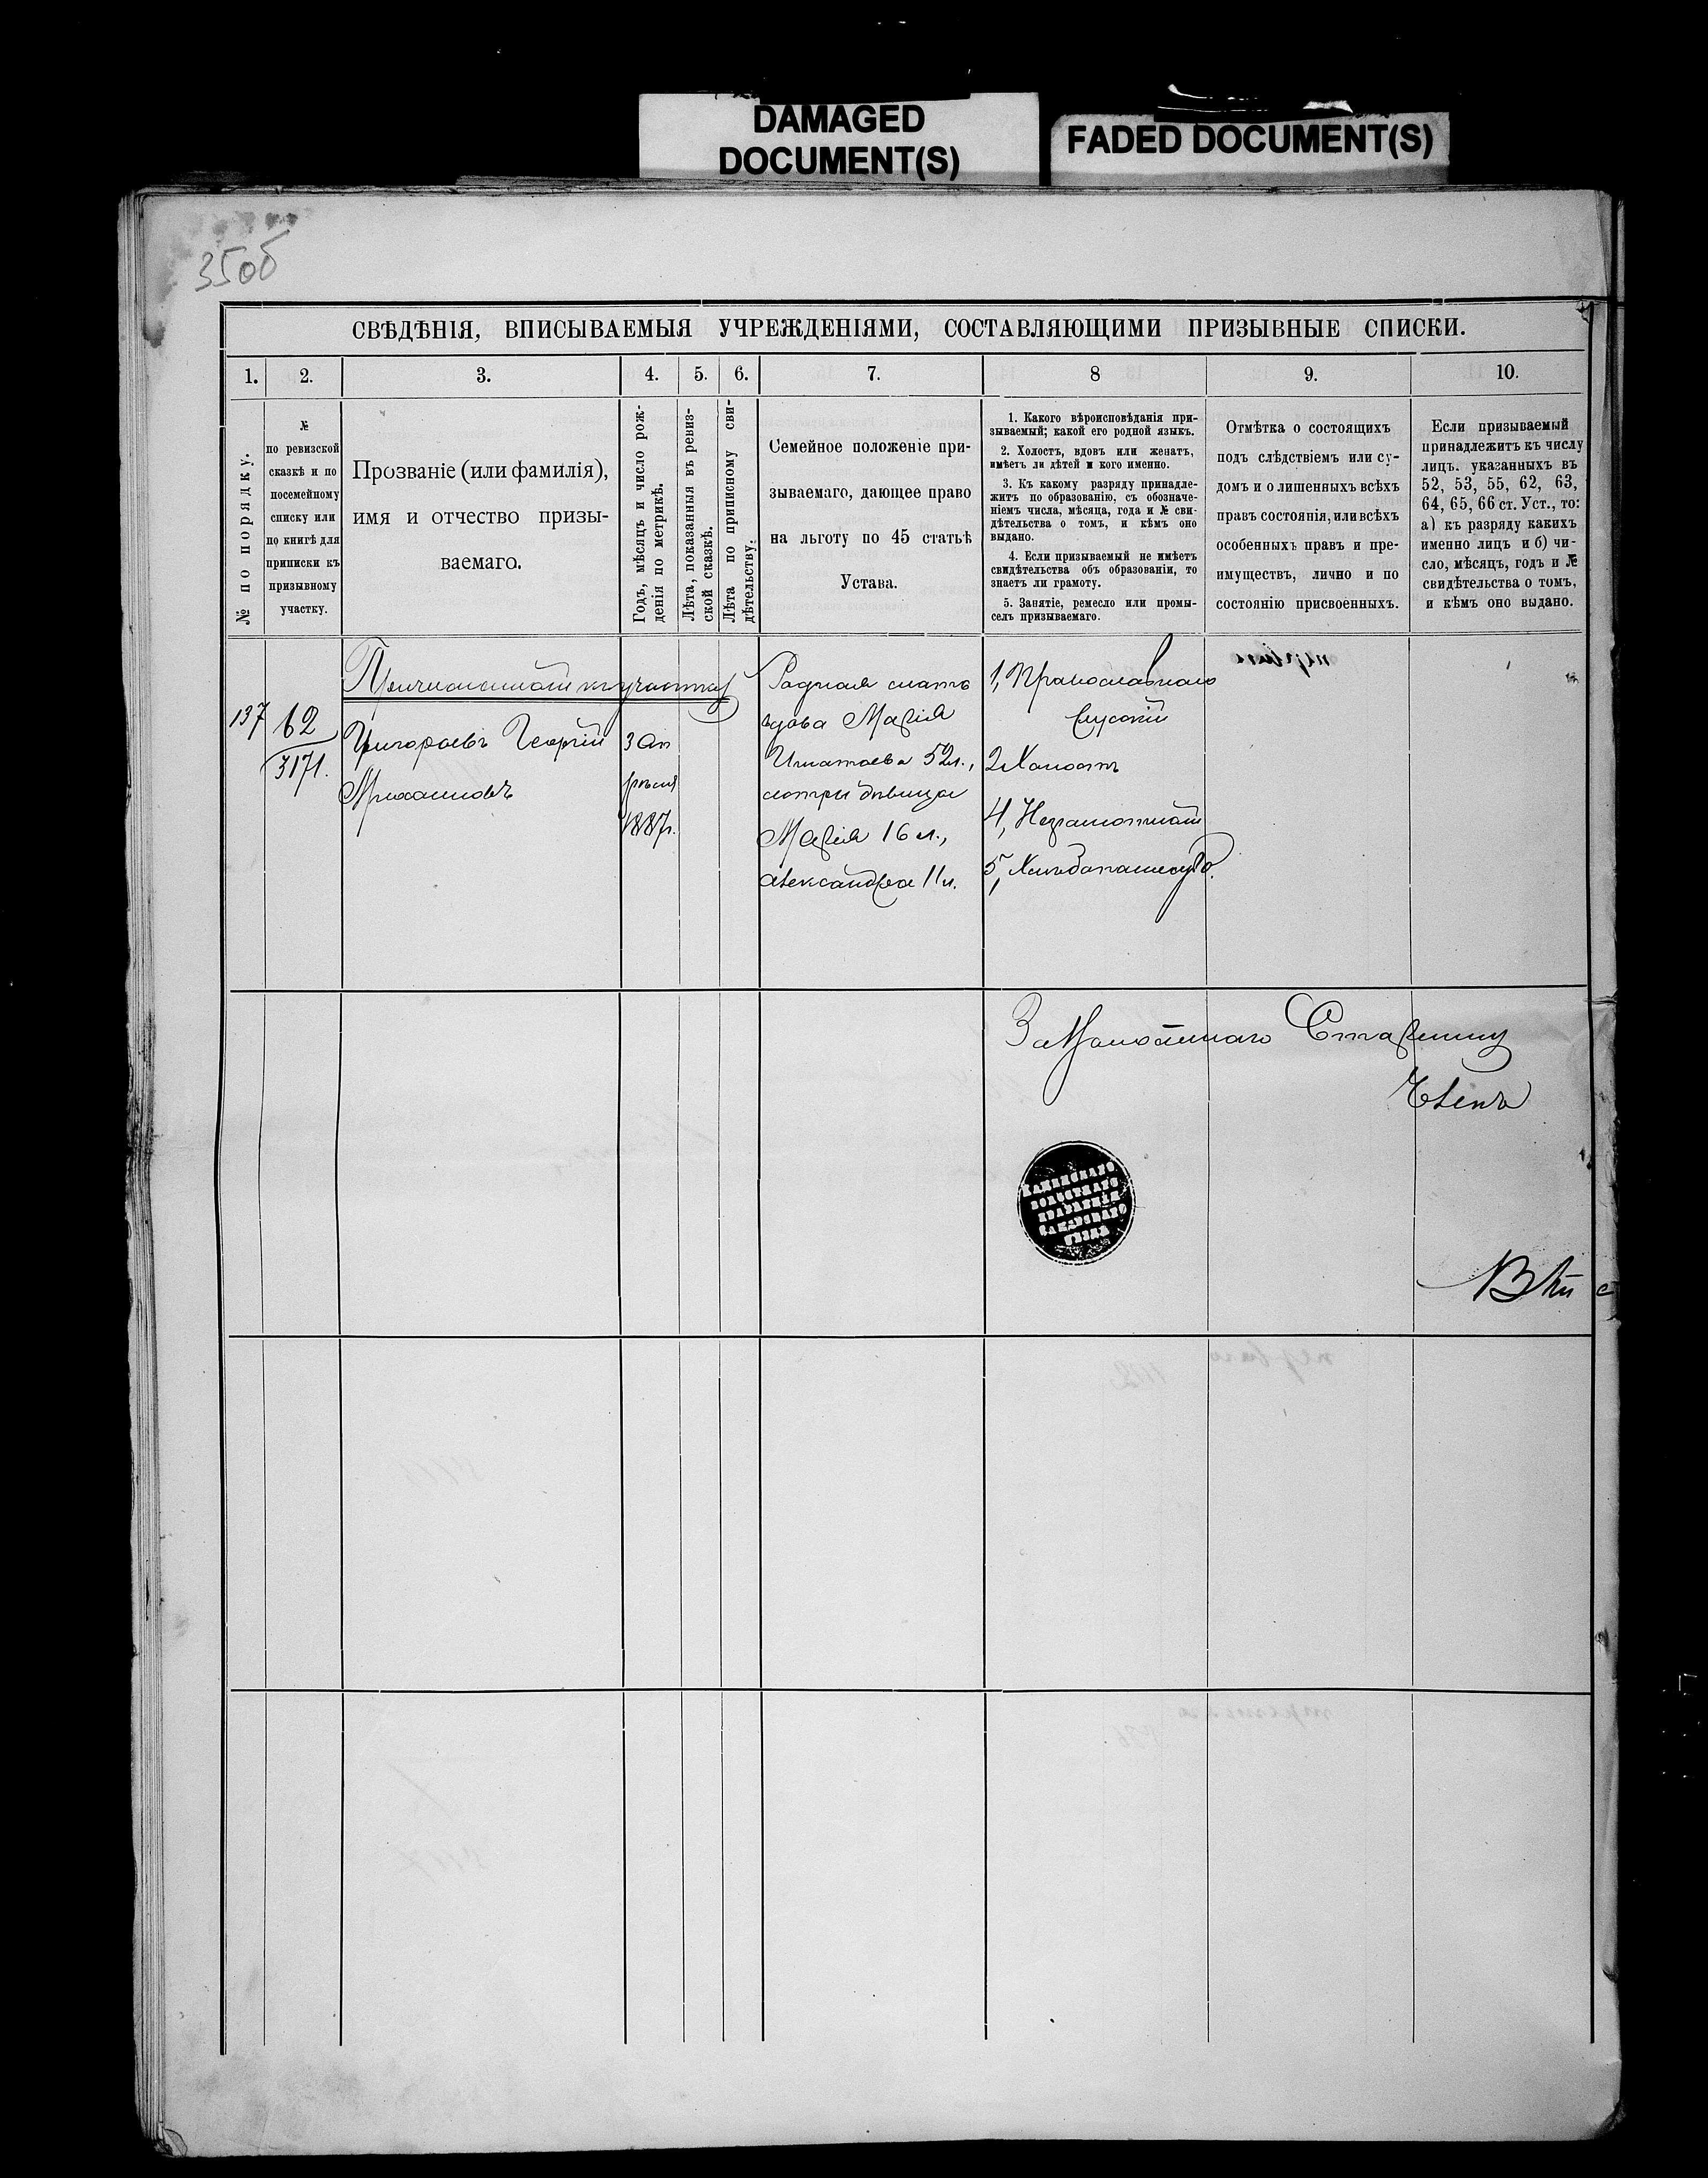 DAMAGED
DOCUMENT(S)
FADED DOCUMENT(S)
35об
СВѢДѢНІЯ, ВПИСЫВАЕМЫЯ УЧРЕЖДЕНІЯМИ, СОСТАВЛЯЮЩИМИ ПРИЗЫВНЫЕ СПИСКИ.
1. 2. 3. 4. 5. 6. 7. 8 9. 10.
№ по порядку.
№
по ревизской
сказкѣ и по
посемейному
списку или
по книгѣ для
приписки къ
призывному
участку.
Прозваніе (или фамилія),
имя и отчество призы-
ваемаго.
Годъ, мѣсяцъ и число рож-
денія по метрикѣ.
Лѣта, показанныя въ ревиз-
ской сказкѣ.
Лѣта по приписному сви-
дѣтельству.
Семейное положеніе при-
зываемаго, дающее право
на льготу по 45 статьѣ
Устава.
1. Какого вѣроисповѣданія при-
зываемый; какой его родной языкъ.
2. Холостъ, вдовъ или женатъ,
имѣетъ ли дѣтей и кого именно.
3. Къ какому разряду принадле-
житъ по образованію, съ обозначе-
ніемъ числа, мѣсяца, года и № сви-
дѣтельства о томъ, и кѣмъ оно
выдано.
4. Если призываемый не имѣетъ
свидѣтельства объ образованіи, то
знаетъ ли грамоту.
5. Занятіе, ремесло или промы-
селъ призываемаго.
Отмѣтка о состоящихъ
подъ слѣдствіемъ или су-
домъ и о лишенныхъ всѣхъ
правъ состоянія, или всѣхъ
особенныхъ правъ и пре-
имуществъ, лично и по
состоянію присвоенныхъ.
Если призываемый
принадлежитъ къ числу
лицъ. указанныхъ въ
52, 53, 55, 62, 63,
64, 65, 66 ст. Уст., то:
а) къ разряду какихъ
именно лицъ и б) чи-
сло, мѣсяцъ, годъ и №
свидѣтельства о томъ,
и кѣмъ оно выдано.
къ участку
137
62
3171.
Георгій
Михаиловъ
3 Ап
рѣля
1887г.
Родная мать
вдова Марія
Игнатьева 52л.,
сестры дѣвицы
Марія 16 л.,
Александра 11л.
1, Православнаго
Русскій
2, Холостъ
4, Неграмотный
5, Хлѣбопашество.
За Волостнаго Старшину
КАМЕНСКАГО
ВОЛОСТНАГО
ПРАВЛЕНІЯ
УѢЗДА